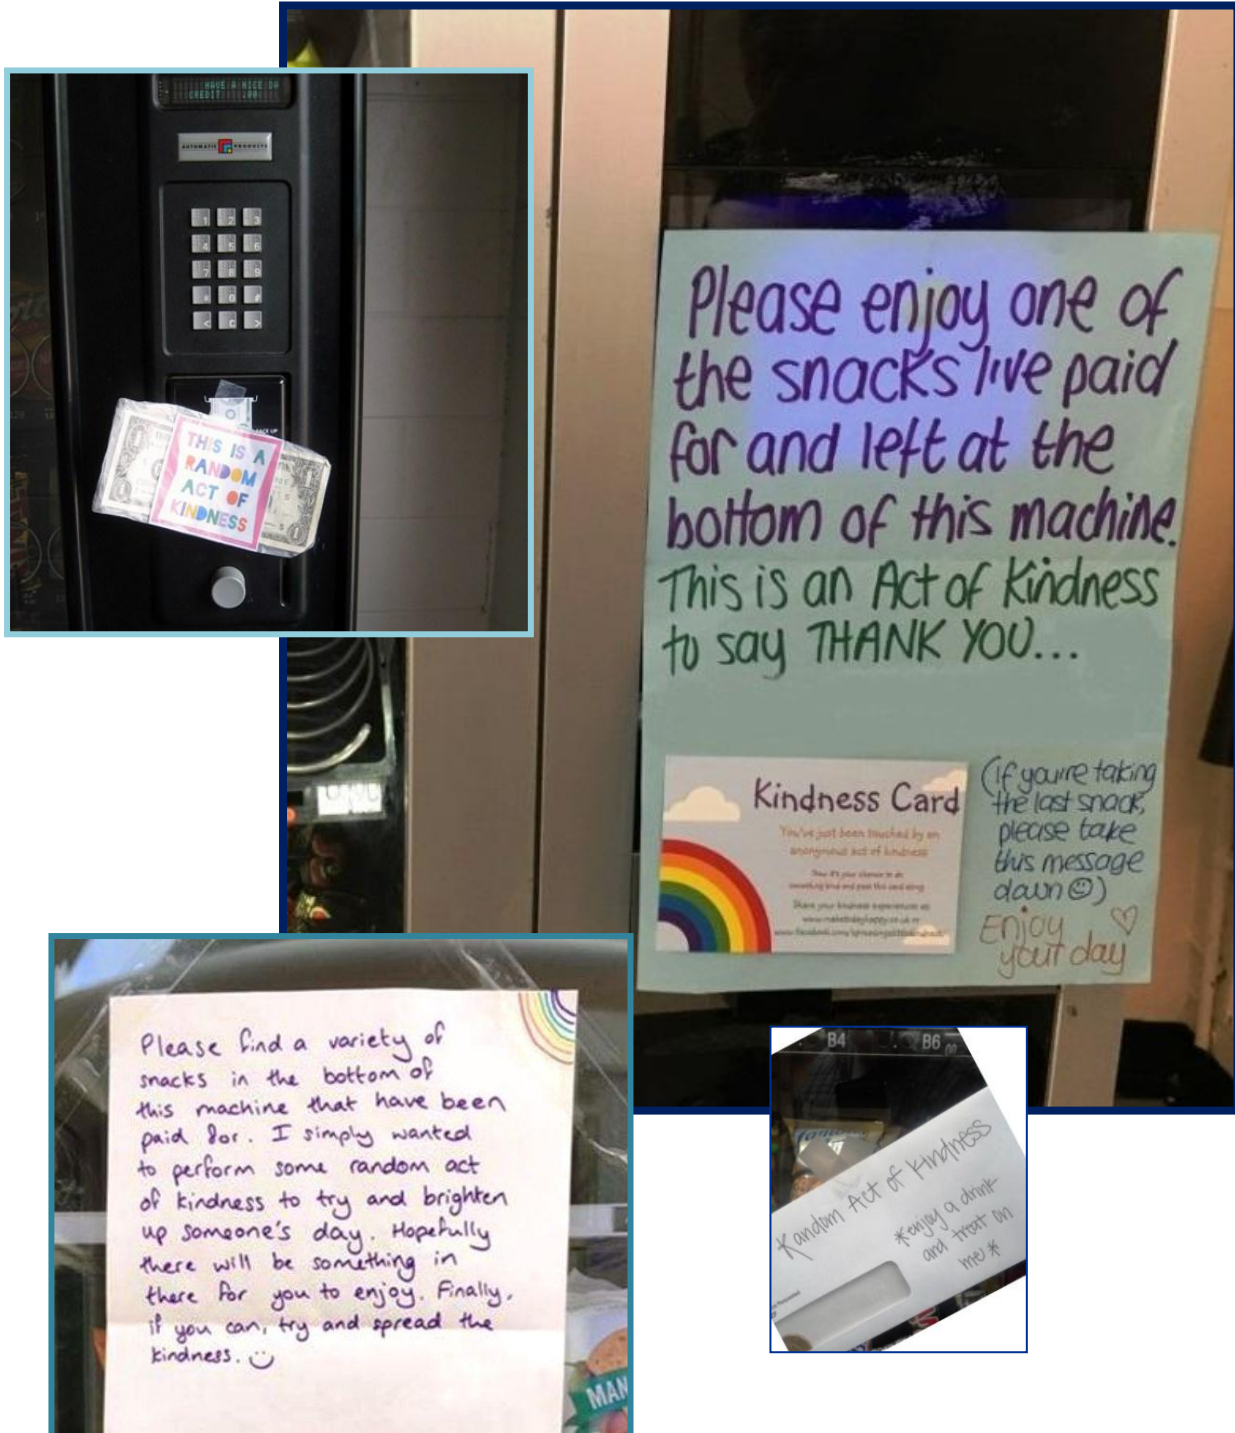 HAVE A NICE DA
CREDIT .00
AUTOMATIC PRODUCTS
1 2 3
4 5 6
7 8 9
* 0 #
< C >
THIS IS A
RANDOM
ACT OF
KINDNESS
Please enjoy one of
the snacks I've paid
for and left at the
bottom of this machine.
This is an Act of Kindness
to say THANK YOU...
Kindness Card
You've just been touched by an
anonymous act of kindness
Now it's your chance to do
something kind and pass this card along
Share your kindness experiences at:
www.makeitdayhappy.co.uk or
(if you're taking
the last snack,
please take
this message
down ☺)
Enjoy ♡
your day
Please find a variety of
snacks in the bottom of
this machine that have been
paid for. I simply wanted
to perform some random act
of kindness to try and brighten
up someone's day. Hopefully
there will be something in
there for you to enjoy. Finally,
if you can, try and spread the
kindness. ☺
MAN
B4 B6
Random Act of Kindness
*enjoy a drink
and treat on
me*